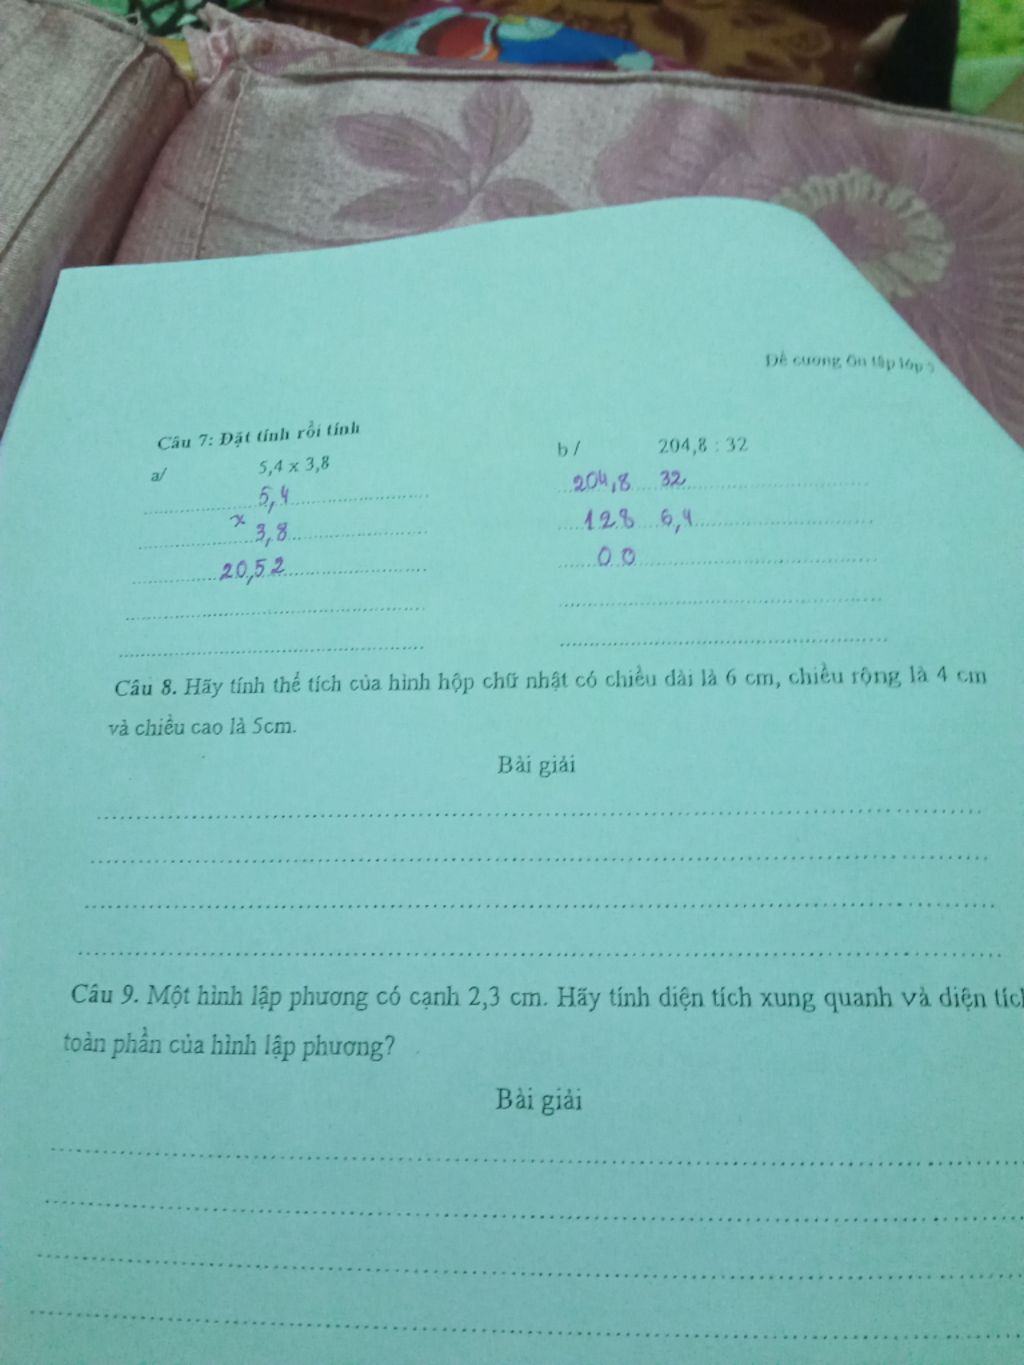 Đề cương ôn tập lớp 5
Câu 7: Đặt tính rồi tính
a/ 5,4 x 3,8
5,4
x
3,8
20,52
b / 204,8 : 32
204,8 32
128 6,4
00
Câu 8. Hãy tính thể tích của hình hộp chữ nhật có chiều dài là 6 cm, chiều rộng là 4 cm
và chiều cao là 5cm.
Bài giải
Câu 9. Một hình lập phương có cạnh 2,3 cm. Hãy tính diện tích xung quanh và diện tích
toàn phần của hình lập phương?
Bài giải